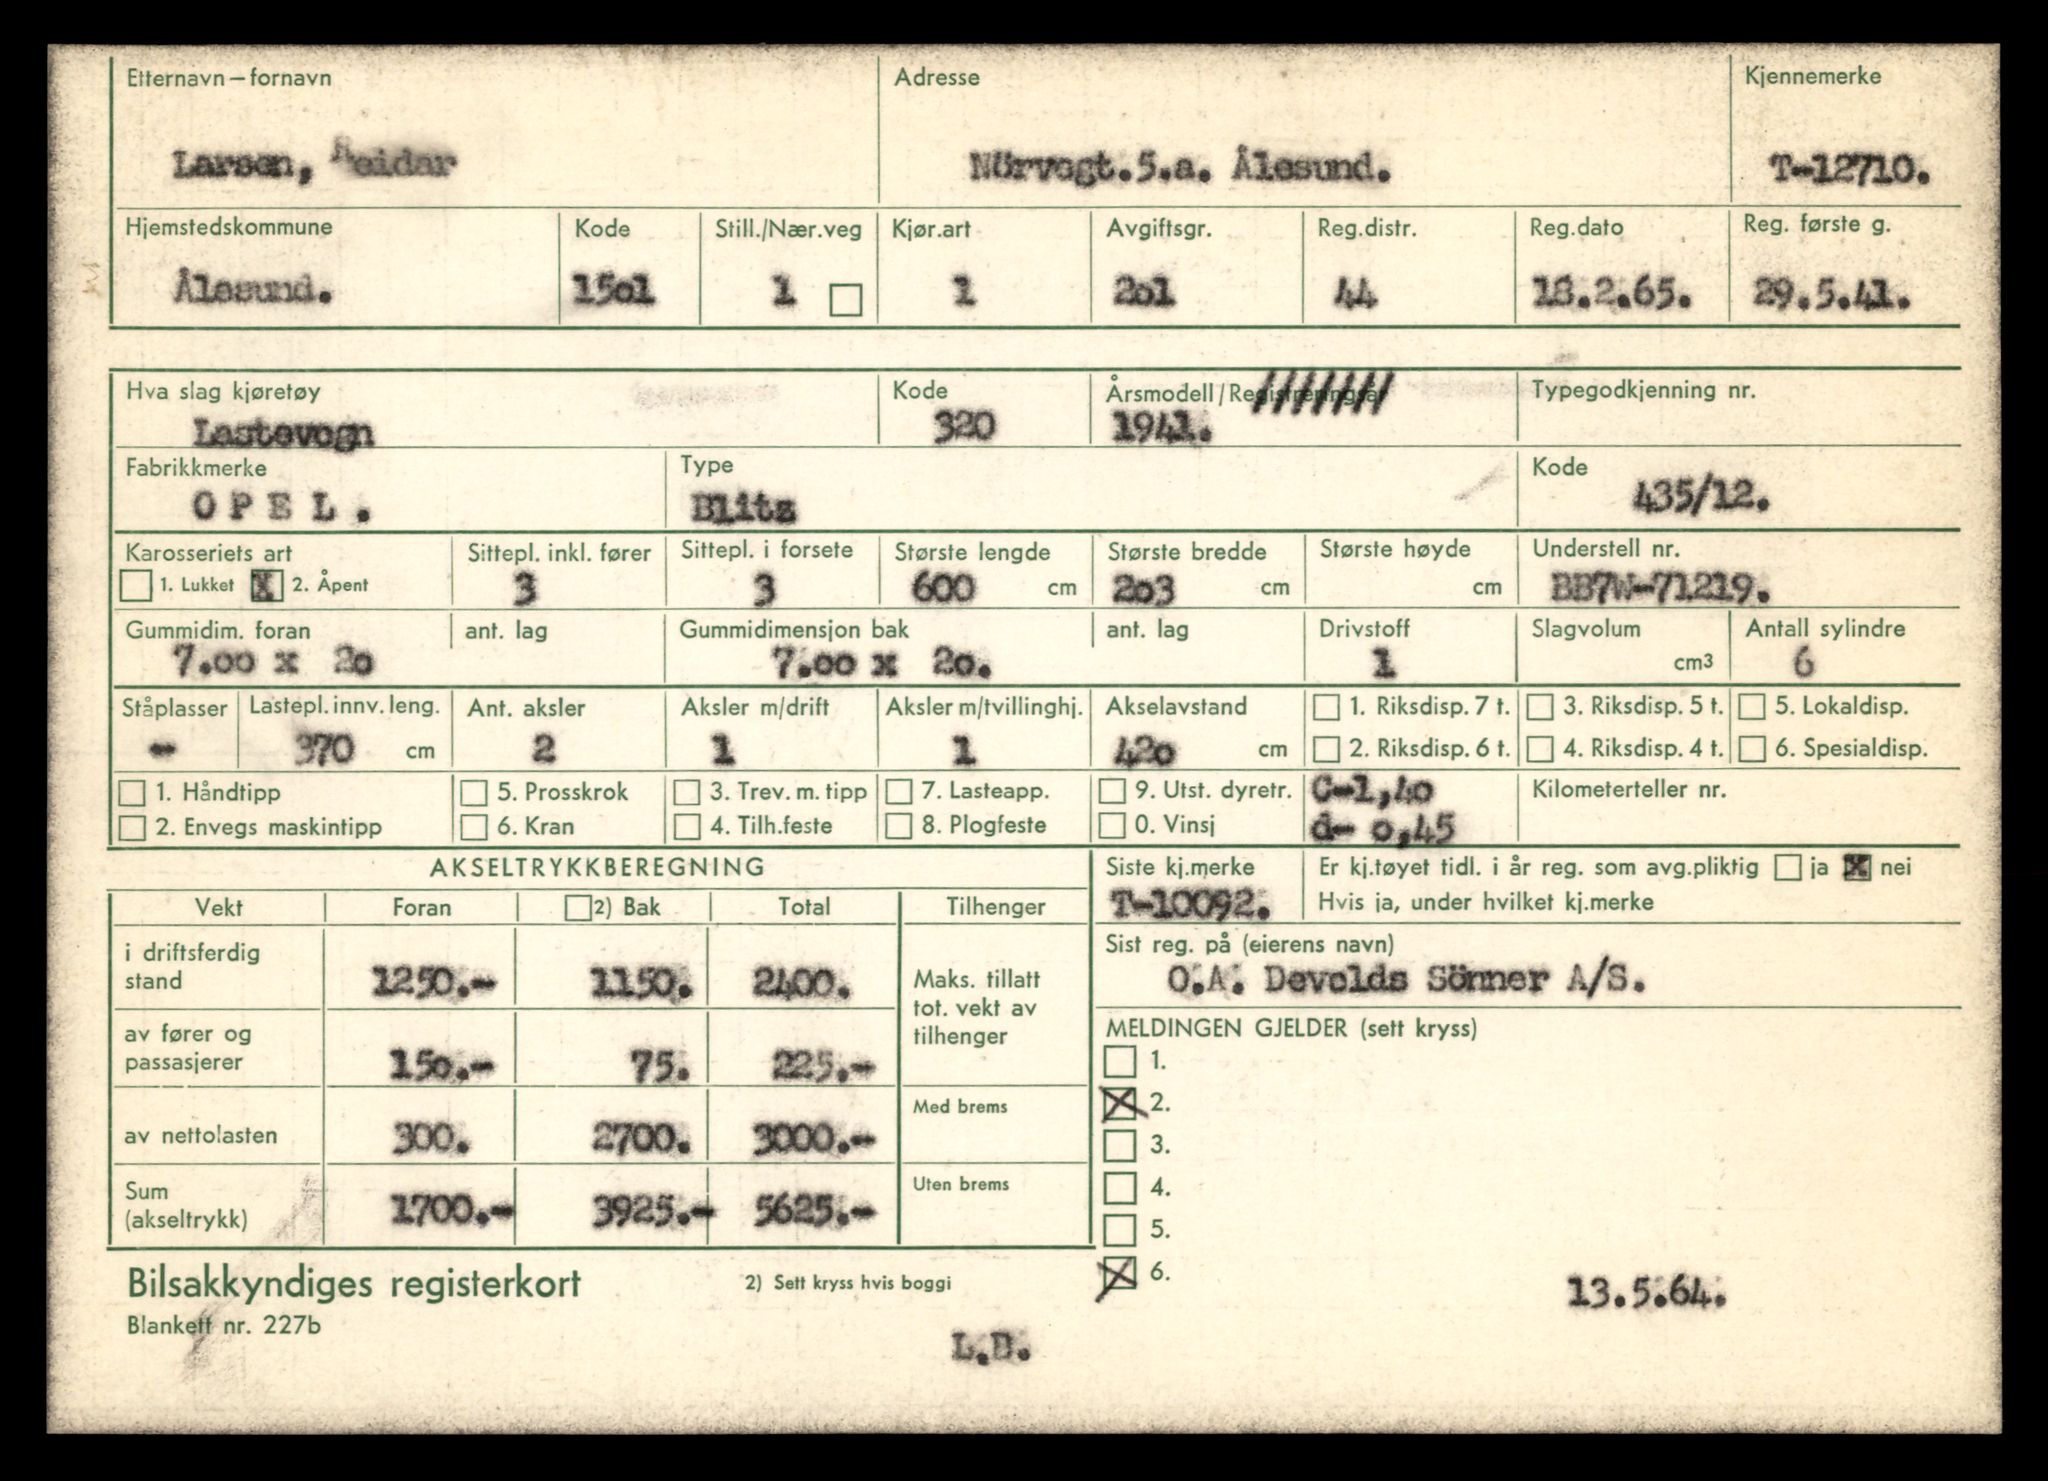 Etternavn – fornavn Adresse Kjennemerke
Larsen, Reidar Nörvegt.5.a. Ålesund. T-12710.
Hjemstedskommune Kode Still./Nær.veg Kjør.art Avgiftsgr. Reg.distr. Reg.dato Reg. første g.
Ålesund. 15o1 1 1 2o1 44 18.2.65. 29.5.41.
Hva slag kjøretøy Kode Årsmodell/Registreringsår Typegodkjenning nr.
Lastevogn 320 1941.
Fabrikkmerke Type Kode
O P E L . Blitz 435/12.
Karosseriets art Sittepl. inkl. fører Sittepl. i forsete Største lengde Største bredde Største høyde Understell nr.
1. Lukket X 2. Åpent 3 3 600 cm 2o3 cm cm BB7W-71219.
Gummidim. foran ant. lag Gummidimensjon bak ant. lag Drivstoff Slagvolum Antall sylindre
7.oo x 2o 7.oo x 2o. 1 cm3 6
Ståplasser Lastepl. innv. leng. Ant. aksler Aksler m/drift Aksler m/tvillinghj. Akselavstand 1. Riksdisp. 7 t. 3. Riksdisp. 5 t. 5. Lokaldisp.
- 370 cm 2 1 1 42o cm 2. Riksdisp. 6 t. 4. Riksdisp. 4 t. 6. Spesialdisp.
1. Håndtipp 5. Prosskrok 3. Trev. m. tipp 7. Lasteapp. 9. Utst. dyretr. C-1,4o Kilometerteller nr.
2. Envegs maskintipp 6. Kran 4. Tilh.feste 8. Plogfeste 0. Vinsj d- o,45
AKSELTRYKKBEREGNING Siste kj.merke Er kj.tøyet tidl. i år reg. som avg.pliktig ja X nei
Vekt Foran 2) Bak Total Tilhenger T-10092. Hvis ja, under hvilket kj.merke
i driftsferdig stand 1250.- 1150. 2400. Maks. tillatt tot. vekt av tilhenger Sist reg. på (eierens navn)
O.A. Devolds Sönner A/S.
av fører og passasjerer 15o.- 75. 225.- MELDINGEN GJELDER (sett kryss)
1.
X 2.
av nettolasten 300. 2700. 3000.- Med brems 3.
4.
Sum (akseltrykk) 1700.- 3925.- 5625.- Uten brems 5.
X 6.
Bilsakkyndiges registerkort 2) Sett kryss hvis boggi 13.5.64.
Blankett nr. 227b
L.B.